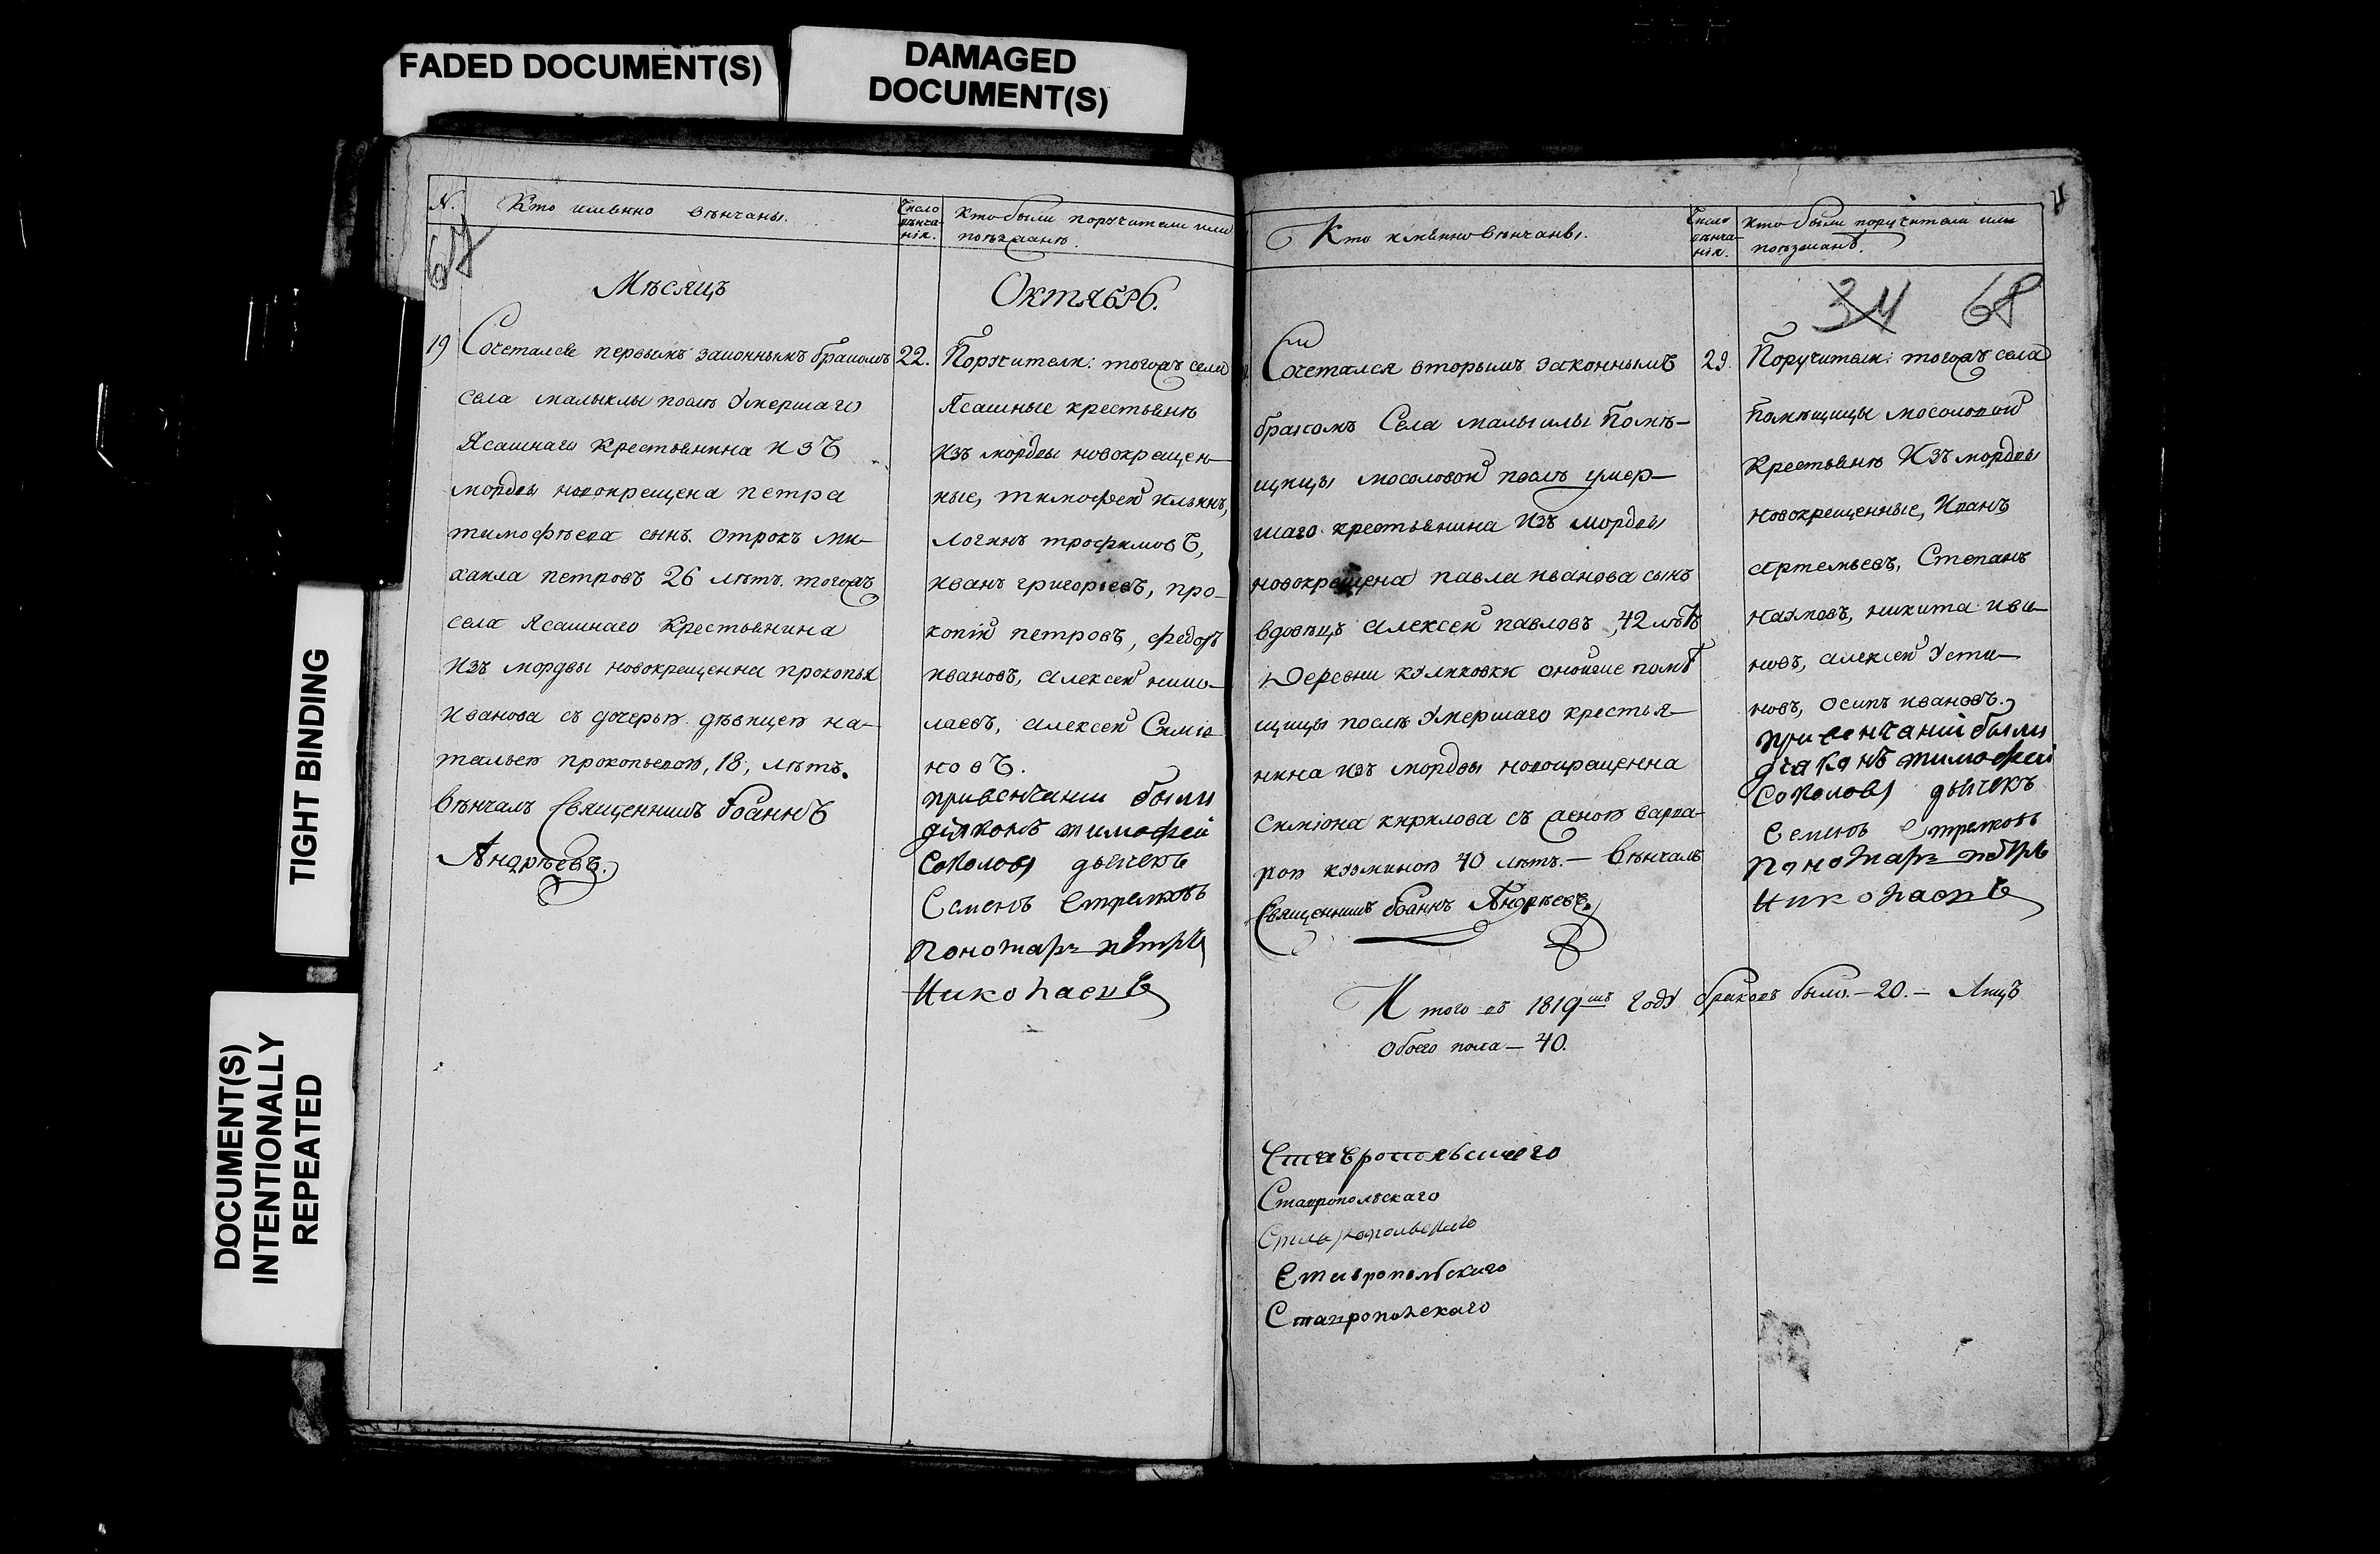 FADED DOCUMENT(S)
DAMAGED
DOCUMENT(S)
TIGHT BINDING
DOCUMENT(S)
INTENTIONALLY
REPEATED
N.
Кто имянно вѣнчаны.
Число
вѣнча-
нія.
Кто были поручители или
поѣзжанѣ.
67
Мѣсяцъ
Октябрь.
19
Сочетался первымъ законнымъ бракомъ
села малыклы послѣ умершаго
Ясашнаго крестьянина изъ
мордвы новокрещена петра
тимофѣева сынъ отрокъ ми-
хаила петровъ 26 лѣтъ. тогожъ
села Ясашнаго крестьянина
изъ мордвы новокрещенна прокопья
Иванова съ дочерью дѣвицею на-
тальею прокопьевою, 18, лѣтъ.
Вѣнчалъ Священникъ Іоаннъ
Андрѣевъ.
22.
Поручители: тогожъ села
Ясашные крестьянѣ
изъ мордвы новокрещен-
ные, тимофей ильинъ,
логинъ трофимовъ,
иванъ григорьевъ, про-
копій петровъ, федоръ
ивановъ, алексей нико-
лаевъ, алексей Симіо
новъ.
при венчании были
діяконъ тимофей
Соколовъ дьячекъ
Семенъ Стрелковъ
Пономарь петръ
Николаевъ
Кто имянно вѣнчаны.
Число
вѣнча-
нія.
Кто были поручители или
поѣзжанѣ.
34 68
Сочетался вторымъ законнымъ
бракомъ Села малыклы Помѣ-
щицы мосоловой послѣ умер-
шаго крестьянина изъ мордвы
новокрещена павла иванова сынъ
вдовецъ алексей павловъ, 42 лѣтъ
Деревни куликовки оной же помѣ
щицы послѣ умершаго крестья-
нина изъ мордвы новокрещенна
Симіона кирилова съ женою варва-
рою козминою 40 лѣтъ. — Вѣнчалъ
Священникъ Іоаннъ Андрѣевъ.
29.
Поручители: тогожъ села
Помѣщицы мосоловой
крестьянѣ изъ мордвы
новокрещенные, Иванъ
артемьевъ, Степанъ
наумовъ, никита ива-
новъ, алексей Усти-
новъ, осипъ ивановъ.
при венчаніи были
діаконъ тимофей
Соколовъ дьячекъ
Семенъ Стрелковъ
Пономарь петръ
Николаевъ
Итого въ 1819мъ Году браковъ было. — 20. — Лицъ
обоего пола — 40.
Ставропольскаго
Ставропольскаго
Ставропольскаго
Ставропольскаго
Ставропольскаго